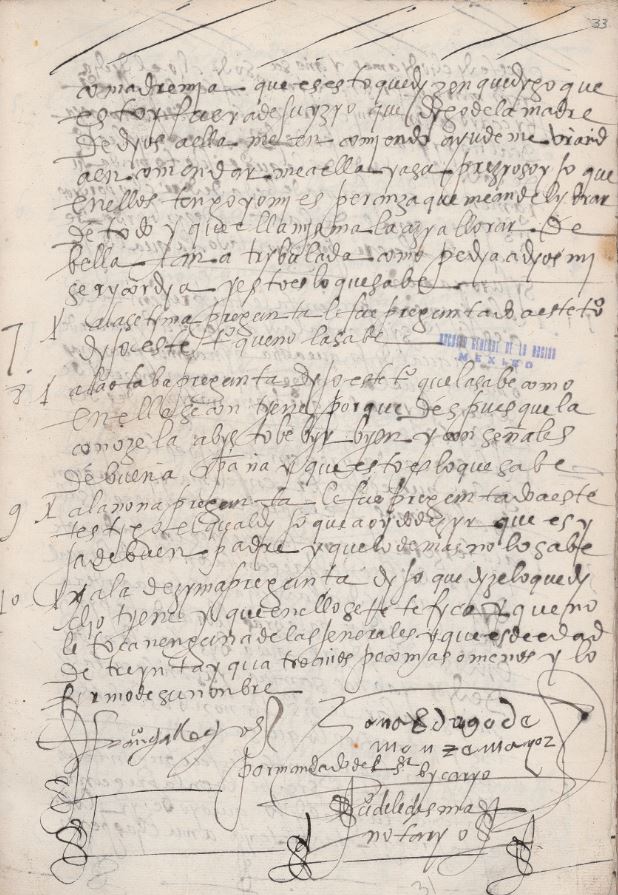 33
comadre mia que es esto que dizen que dyxo que
estoy fuera de juyzyo que dixo de la madre
de dyos a ella me en comyendo ayudeme
a en comendar me a ella y a sa preziosoyjo que
en ellos tengo yo mi esperanza que me an de lybrar
de todo y que ella misma la azya llorar de
bella tan atrybulada como pedia a dyos mi
serycordia y esto es lo que sabe
7 Y a la setima pregunta le fue preguntado a este to
dyxo este to que no la sabe
ARCHIVO GENERAL DE LA NACION
MEXICO
8 Y a la otaba pregunta dyxo este to que la sabe como
en ella se contyene porque despues que la
conoze la a bysto bebyr byen y con señales
de buena xpiana y que esto es lo que sabe
9 Y a la nona pregunta le fue preguntado a este
testigo el qual dixo que a oydo dezyr que es y
ja de buen padre y que lo demas no lo sabe
10 Y a la dezyma pregunta dyxo que dyze lo que dy
cho tyene y que en ello se rretefyca y que no
le toca nenguna de las jenerales y que es de edad
de treynta y quatro años poco mas o menos y lo
firmo de su nonbre
franco gallegos
Monzon mayor
por mandado del sr bycaryo
de ledesma
notaryo